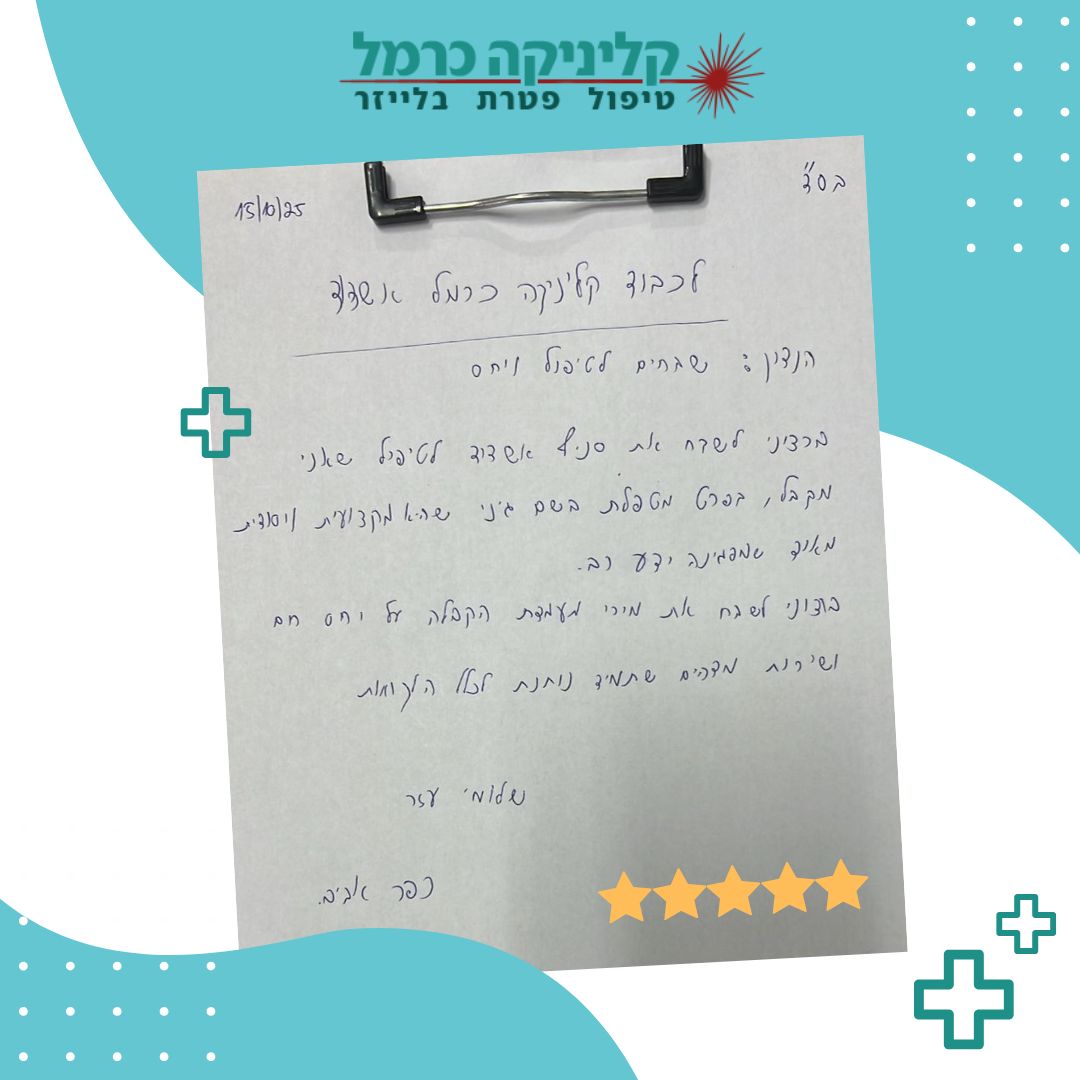 קליניקה כרמל
טיפול פטרת בלייזר
בס"ד
13/10/25
לכבוד קליניקה כרמל אשדוד
הנדון: שבחים לטיפול ויחס
ברצוני לשבח את סניף אשדוד לטיפול שאני
מקבל, בפרט מטפלת בשם ג'ני שהיא מקצועית ויסודית
מאוד שמפגינה ידע רב.
ברצוני לשבח את מירי מעמדת הקבלה על יחס חם
ושירות מדהים שתמיד נותנת לכלל הלקוחות
שלומי עזר
כפר אביב.